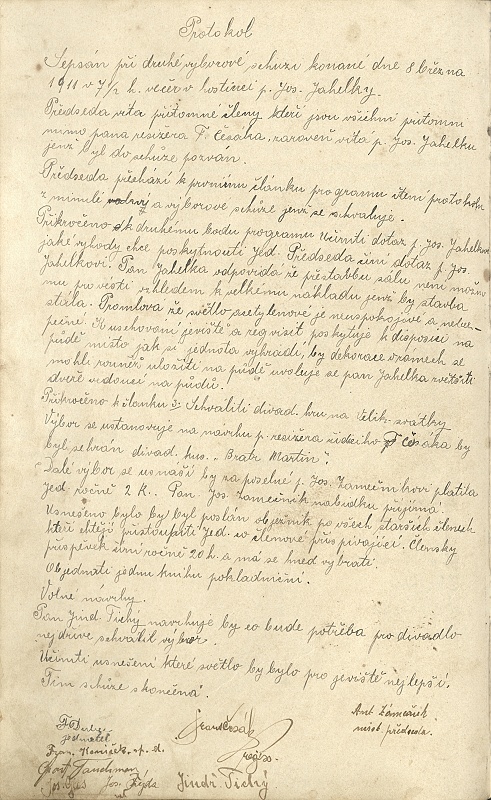 Protokol
Sepsán při druhé výborové schuzi konané dne 8 března
1911 v 7 1/2 h. večer v hostinci p. Jos. Jahelky.
Předseda vítá přítomné členy kteří jsou všichni přítomni
mimo pana režiséra F. Česáka, zároveň vítá p. Jos. Jahelku
jenž byl do schůze pozván.
Předseda přechází k prvnímu článku programu čtení protokolu
z minulé valné a výborové schůze jenž se schvaluje.
Přikročeno k druhému bodu programu Učiniti dotaz p. Jos. Jahelkovi
jaké výhody chce poskytnouti Jed. Předseda činí dotaz p. Jos.
Jahelkovi. Pan Jahelka odpovídá že přestavbu sálu není možno
mu provésti vzhledem k velkému nákladu jenž by stavba
stála. Promlova že světlo acetylenové je neuspokojivé a nebez-
pečné. K uschování jeviště a reqvisit poskytuje k disposici na
půdě místo jak si jednota vyhradí, by dekorace s rámem se
mohli rovněž uložiti na půdě uvoluje se pan Jahelka zvětšiti
dveře vedoucí na půdu.
Přikročeno k článku 3: Schváliti divad. hru na Velik. svátky
Výbor se ustanovuje na návrhu p. režiséra řídícího F Česáka by
byl sehrán divad. kus. „Bratr Martin".
Dále výbor se usnáší by za poselné p. Jos. Zámečníkovi platila
Jed. ročně 2 K.. Pan. Jos. Zámečník nabídku přijímá.
Usneseno bylo by byl poslán oběžník po všech starších členech
kteří chtějí přistoupiti Jed. co členové přispívající. Členský
příspěvek činí ročně 20 h. a má se hned vybrati.
Objednati jednu knihu pokladniční.
Volné návrhy.
Pan Jind. Tichý navrhuje by co bude potřeba pro divadlo
nejdříve schválil výbor.
Učiniti usnešení které světlo by bylo pro jeviště nejlepší.
Tím schůze skončená.
jednatel
Ant. Zámečník
míst. předseda.
Jos. Fejda
Jindř. Tichý